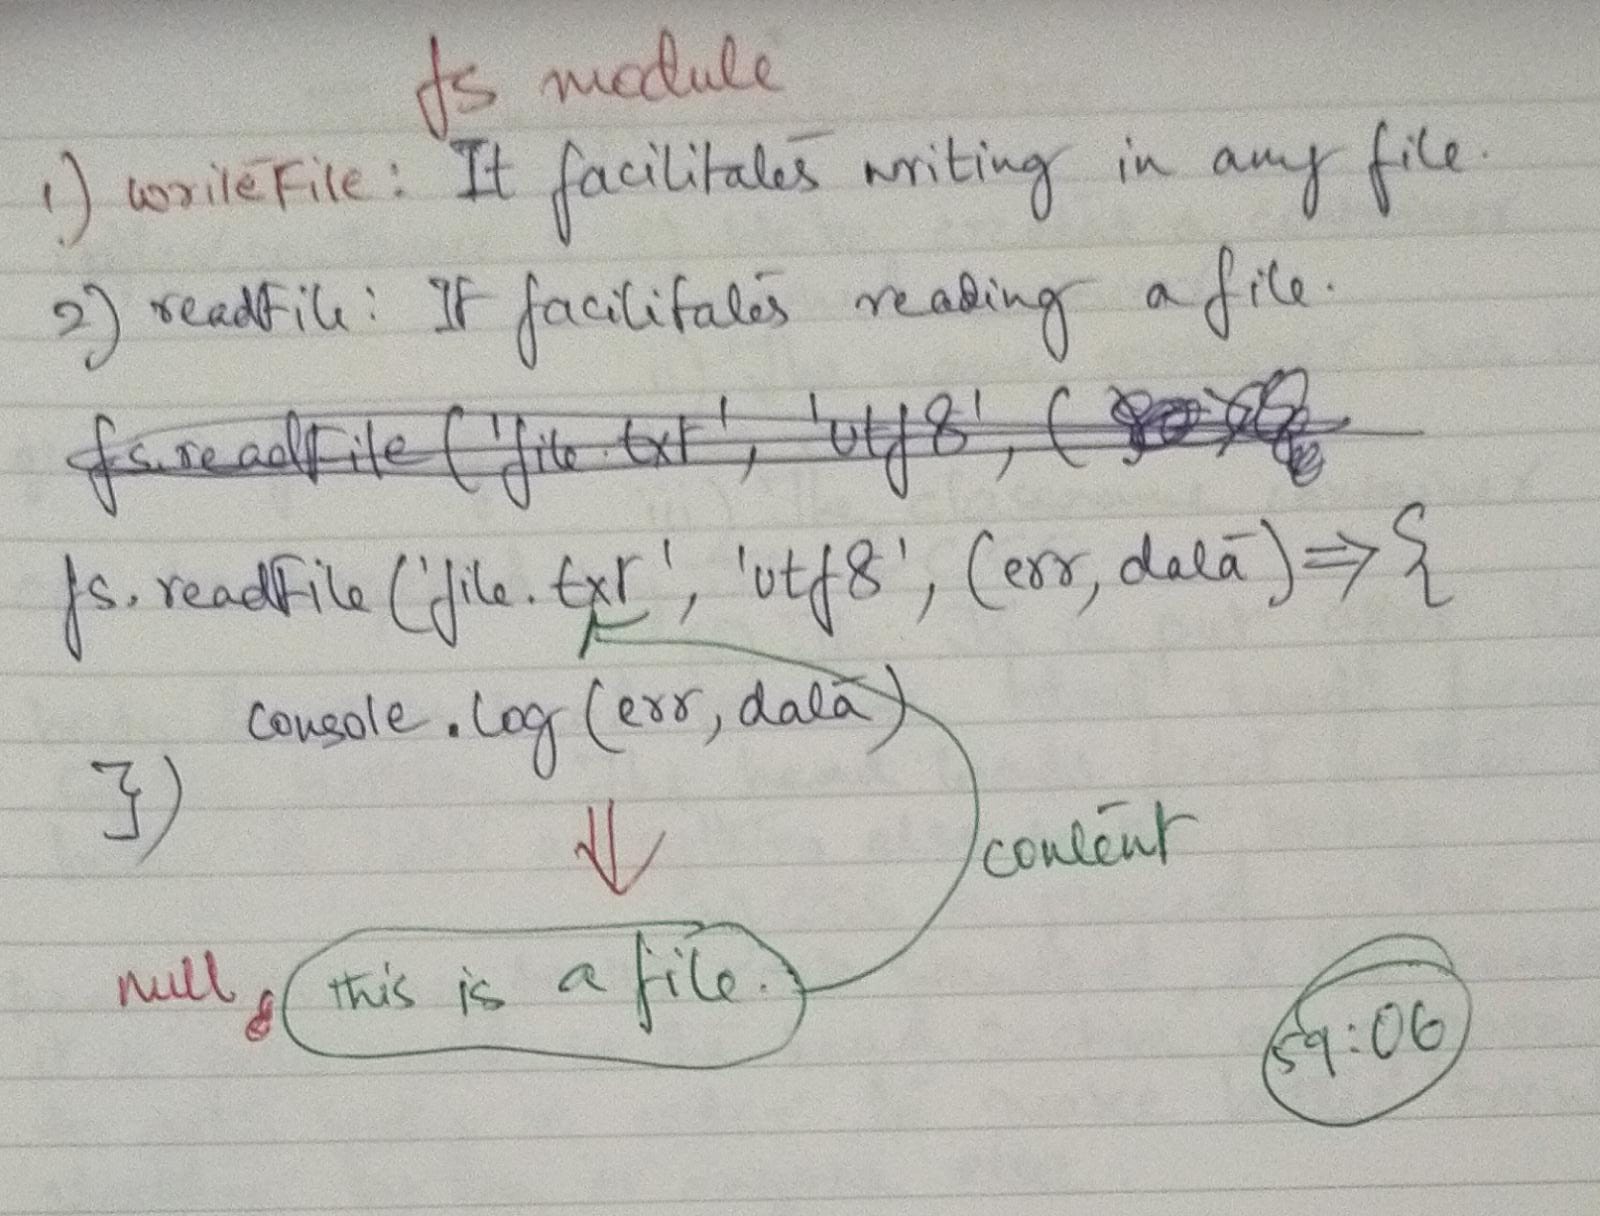 fs module
1) writeFile: It facilitates writing in any file.
2) readFile: It facilitates reading a file.
fs.readFile('file.txt', 'utf8', (
fs.readFile('file.txt', 'utf8', (err, data) => {
console.log(err, data)
})
content
null this is a file.
59:06